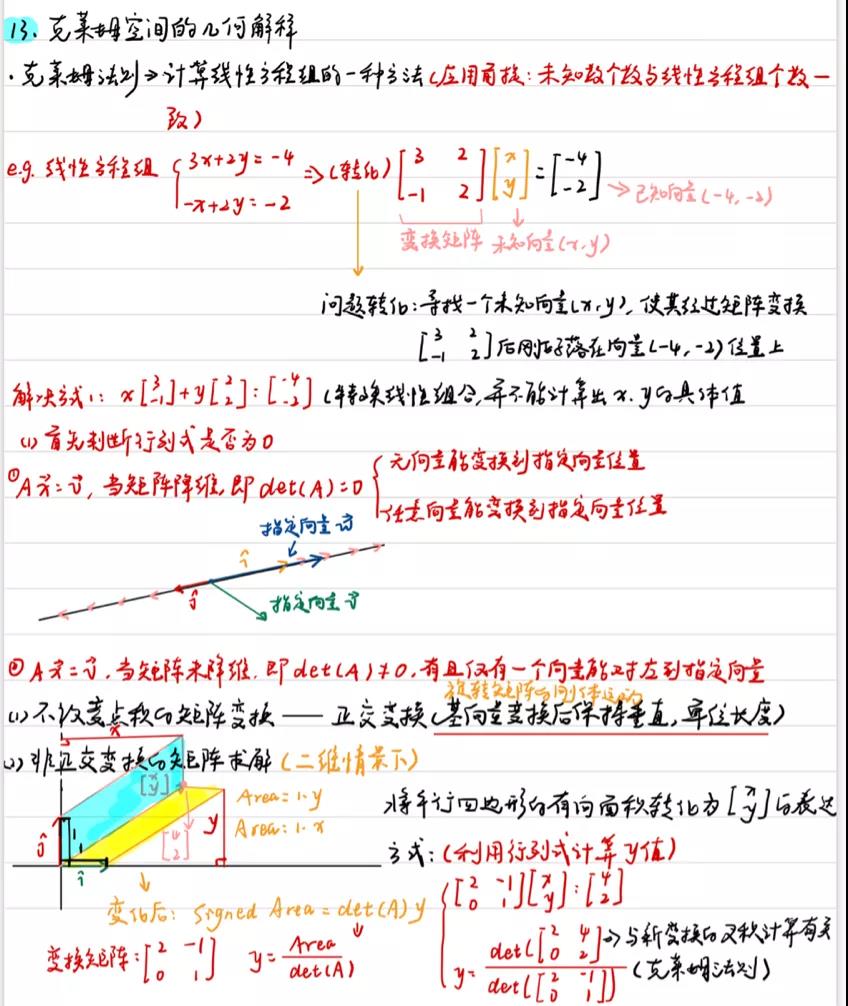 13、克莱姆空间的几何解释
·克莱姆法则→计算线性方程组的一种方法（应用前提：未知数个数与线性方程组个数一
致）
e.g. 线性方程组 { 3x+2y=-4 -x+2y=-2 ⇒（转化）[3 2 -1 2][x y]=[-4 -2] → 已知向量(-4,-2)
变换矩阵 未知向量(x,y)
问题转化：寻找一个未知向量(x,y)，使其经过矩阵变换
[3 2 -1 2]后刚好落在向量(-4,-2)位置上
解决方式1：x[3 -1]+y[2 2]=[-4 -2]（转换线性组合，并不能计算出x、y的具体值
(1) 首先判断行列式是否为0
①Ax⃗=v⃗，当矩阵降维，即det(A)=0 { 无向量能变换到指定向量位置
任意向量能变换到指定向量位置
指定向量w⃗
î
ĵ
指定向量v⃗
②Ax⃗=v⃗，当矩阵未降维，即det(A)≠0，有且仅有一个向量能对应到指定向量
旋转矩阵的刚体运动
(1) 不改变点积的矩阵变换 —— 正交变换（基向量变换后保持垂直，单位长度）
(2) 非正交变换的矩阵求解（二维情景下）
x
[x y]
Area=1·y
Area=1·x
y
[4 2]
ĵ
1
1
î
将平行四边形的有向面积转化为[x y]的表达
方式：（利用行列式计算y值）
[2 -1 0 1][x y]=[4 2]
变化后：Signed Area=det(A)y
变换矩阵：[2 -1 0 1] y=Area/det(A)
y=det([2 4 0 2])/det([2 -1 0 1]) ⇒与新变换的叉积计算有关
（克莱姆法则）